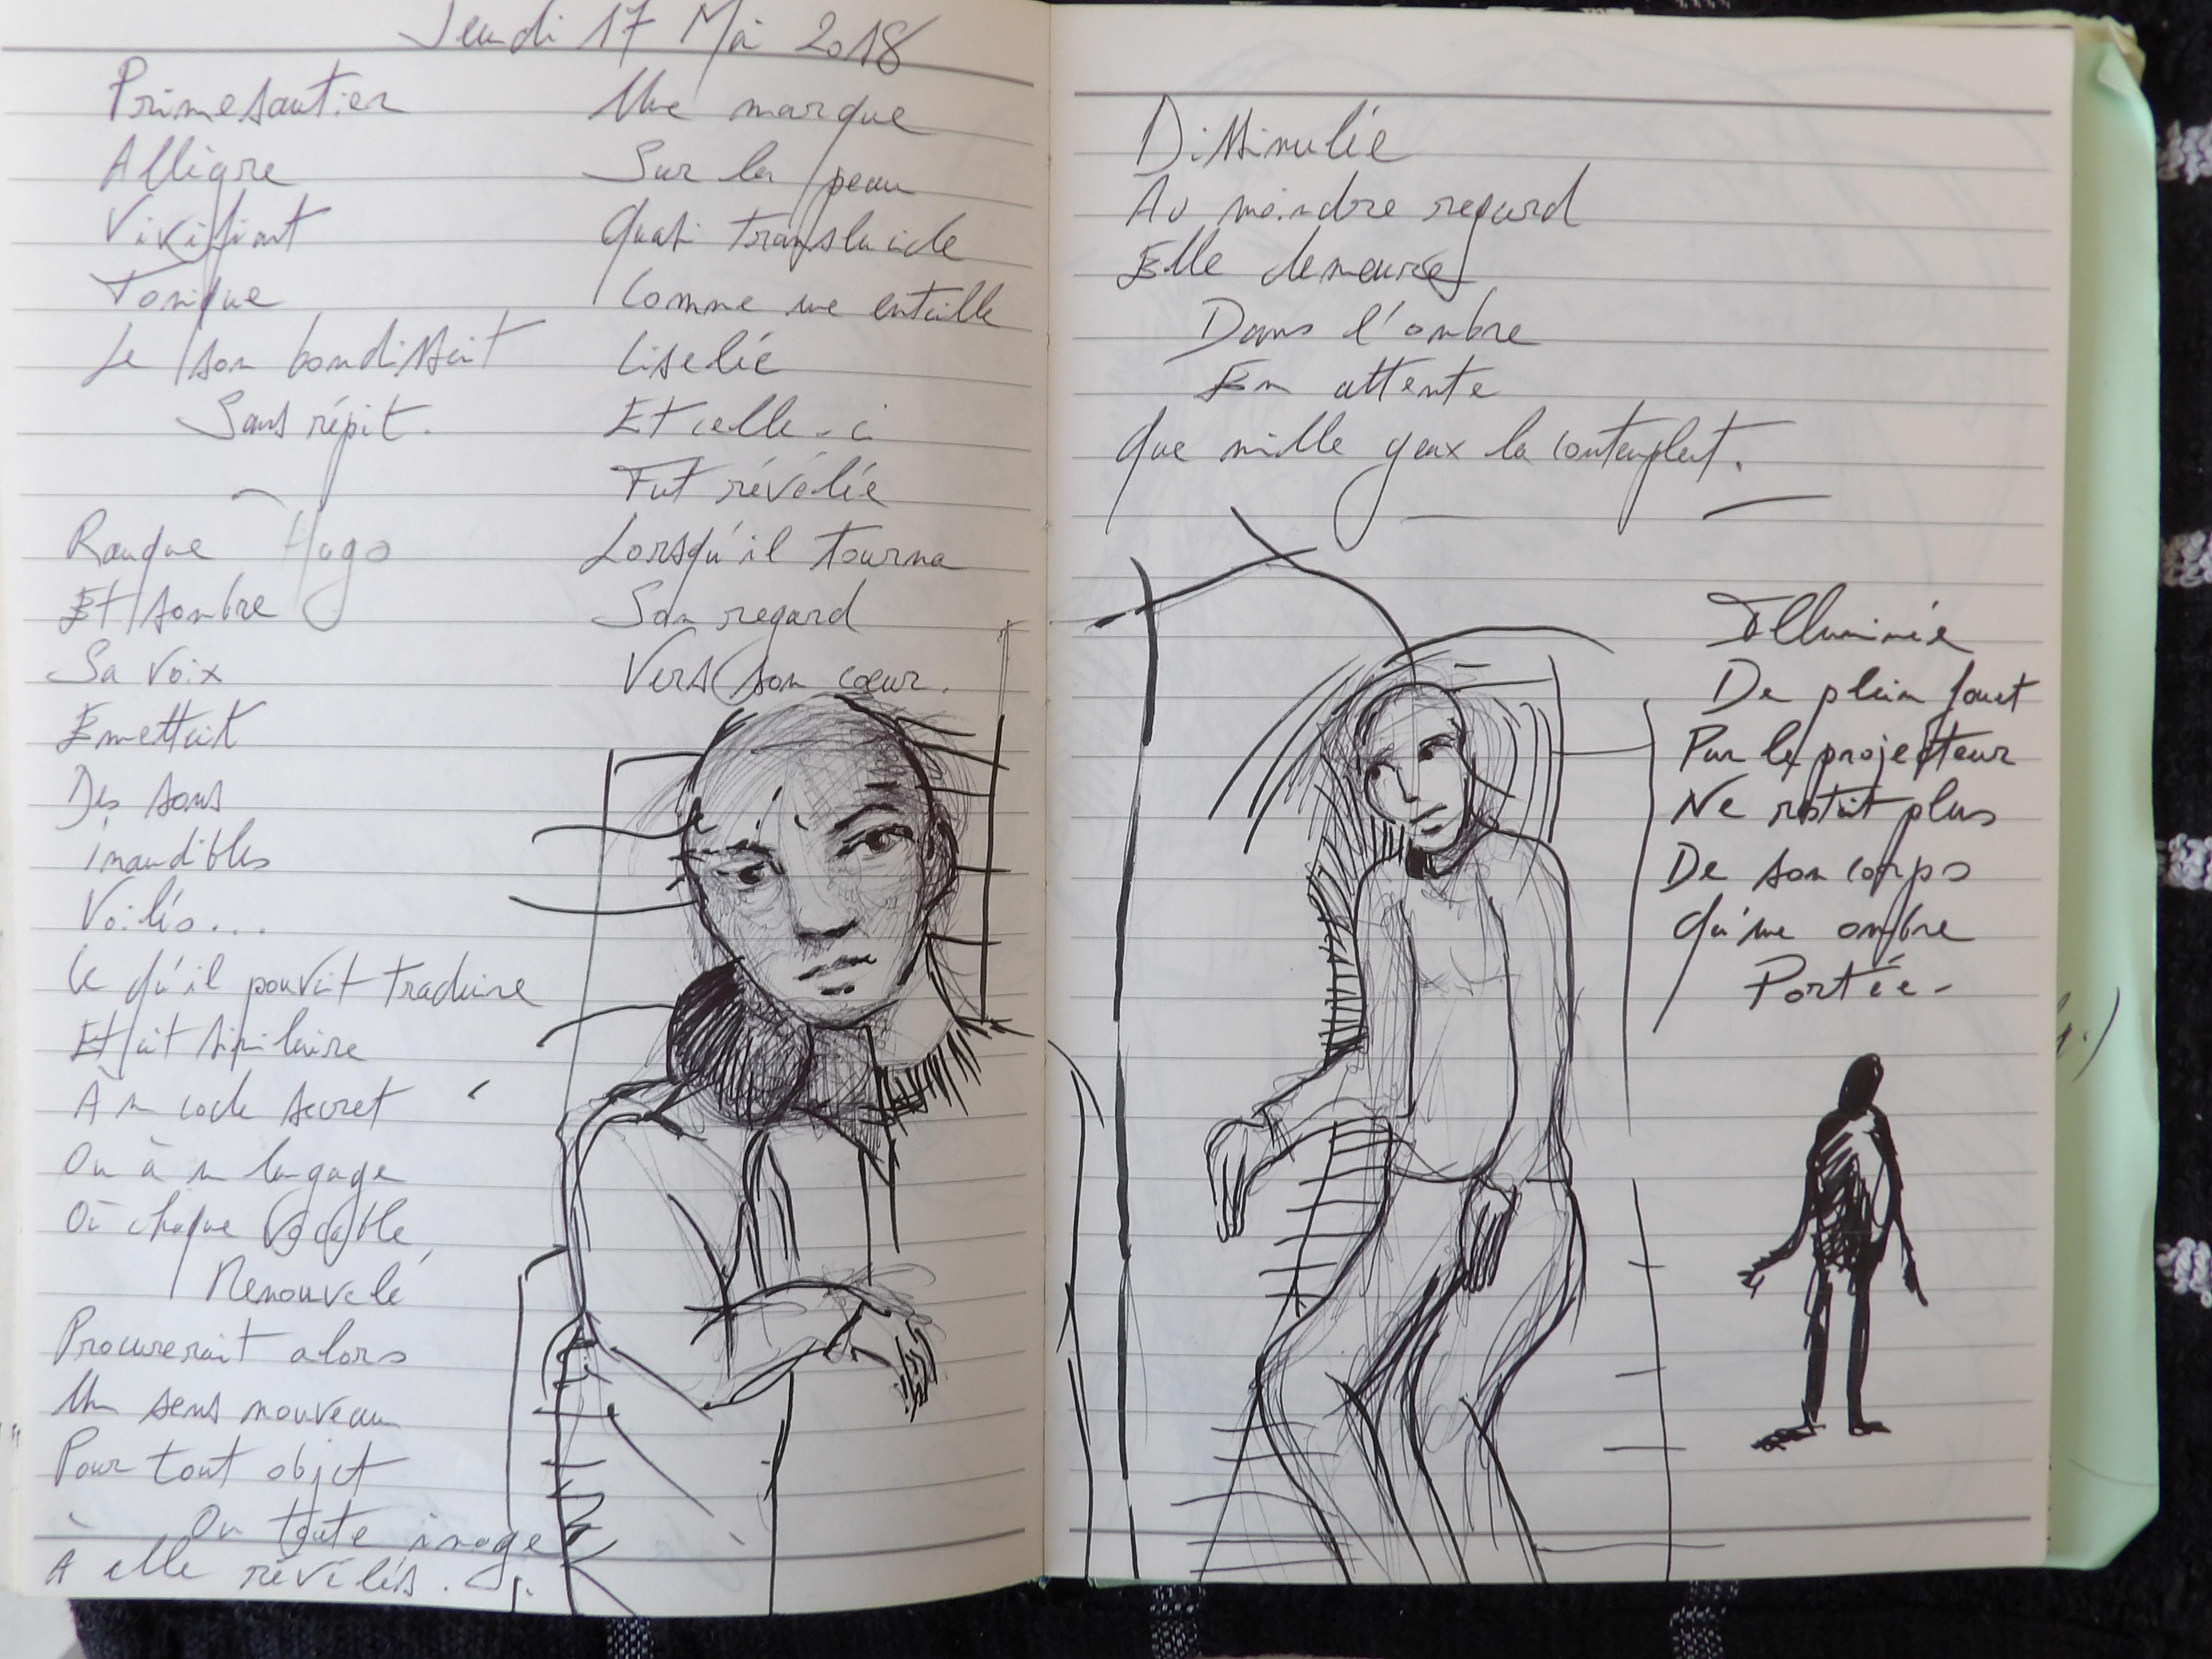 Jeudi 17 Mai 2018
Primesautier
Allègre
Vivifiant
Tonique
Le son bondissait
Sans répit.
Hugo
Rauque
Et sombre
Sa voix
Emettait
Des sons
inaudibles
Voilés...
Ce qu'il pouvait traduire
Etait similaire
À un code secret
Ou à un langage
Où chaque vocable,
Renouvelé
Procurerait alors
Un sens nouveau
Pour tout objet
Ou toute image
À elle révélés.
Une marque
Sur la peau
Quasi translucide
Comme une entaille
Ciselée
Et celle-ci
Fut révélée
Lorsqu'il tourna
Son regard
Vers son cœur.
Dissimulée
Au moindre regard
Elle demeure
Dans l'ombre
En attente
Que mille yeux la contemplent.
Illuminée
De plein fouet
Par le projecteur
Ne restait plus
De son corps
Qu'une ombre
Portée-